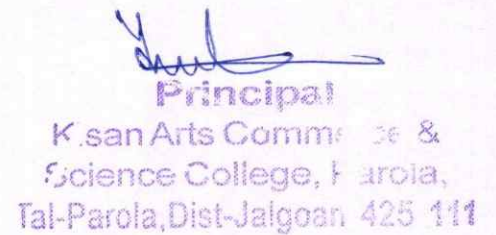 Principal
K.san Arts Comm ce &
Science College, Parola,
Tal-Parola,Dist-Jalgoan 425 111